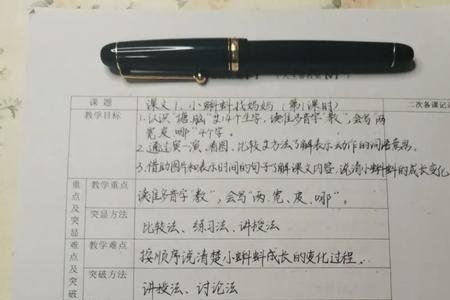 课 题 课文1、小蝌蚪找妈妈(第1课时) 二次备课记
教学目标 1.认识“塘、脑”等14个生字,读准多音字“教”,会写“两
宽、皮、哪”4个字。
2.通过演一演、看图、比较等方法了解表示动作的词语意思。
3.借助图片和表示时间的句子了解课文内容,说清小蝌蚪的成长变化
重点及突显 教学重点 读准多音字“教”,会写“两、宽、皮、哪”。
突显方法 比较法、练习法、讲授法
难点及突破 教学难点 按顺序说清楚小蝌蚪成长的变化过程。
突破方法 讲授法、讨论法